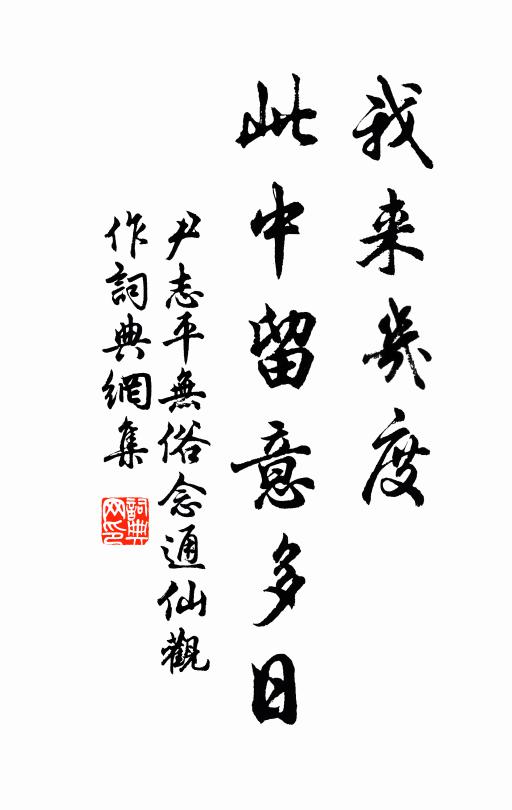 我来幾度
此中留意多日
尹志平無俗念通仙觀
作詞典網集
詞典网印